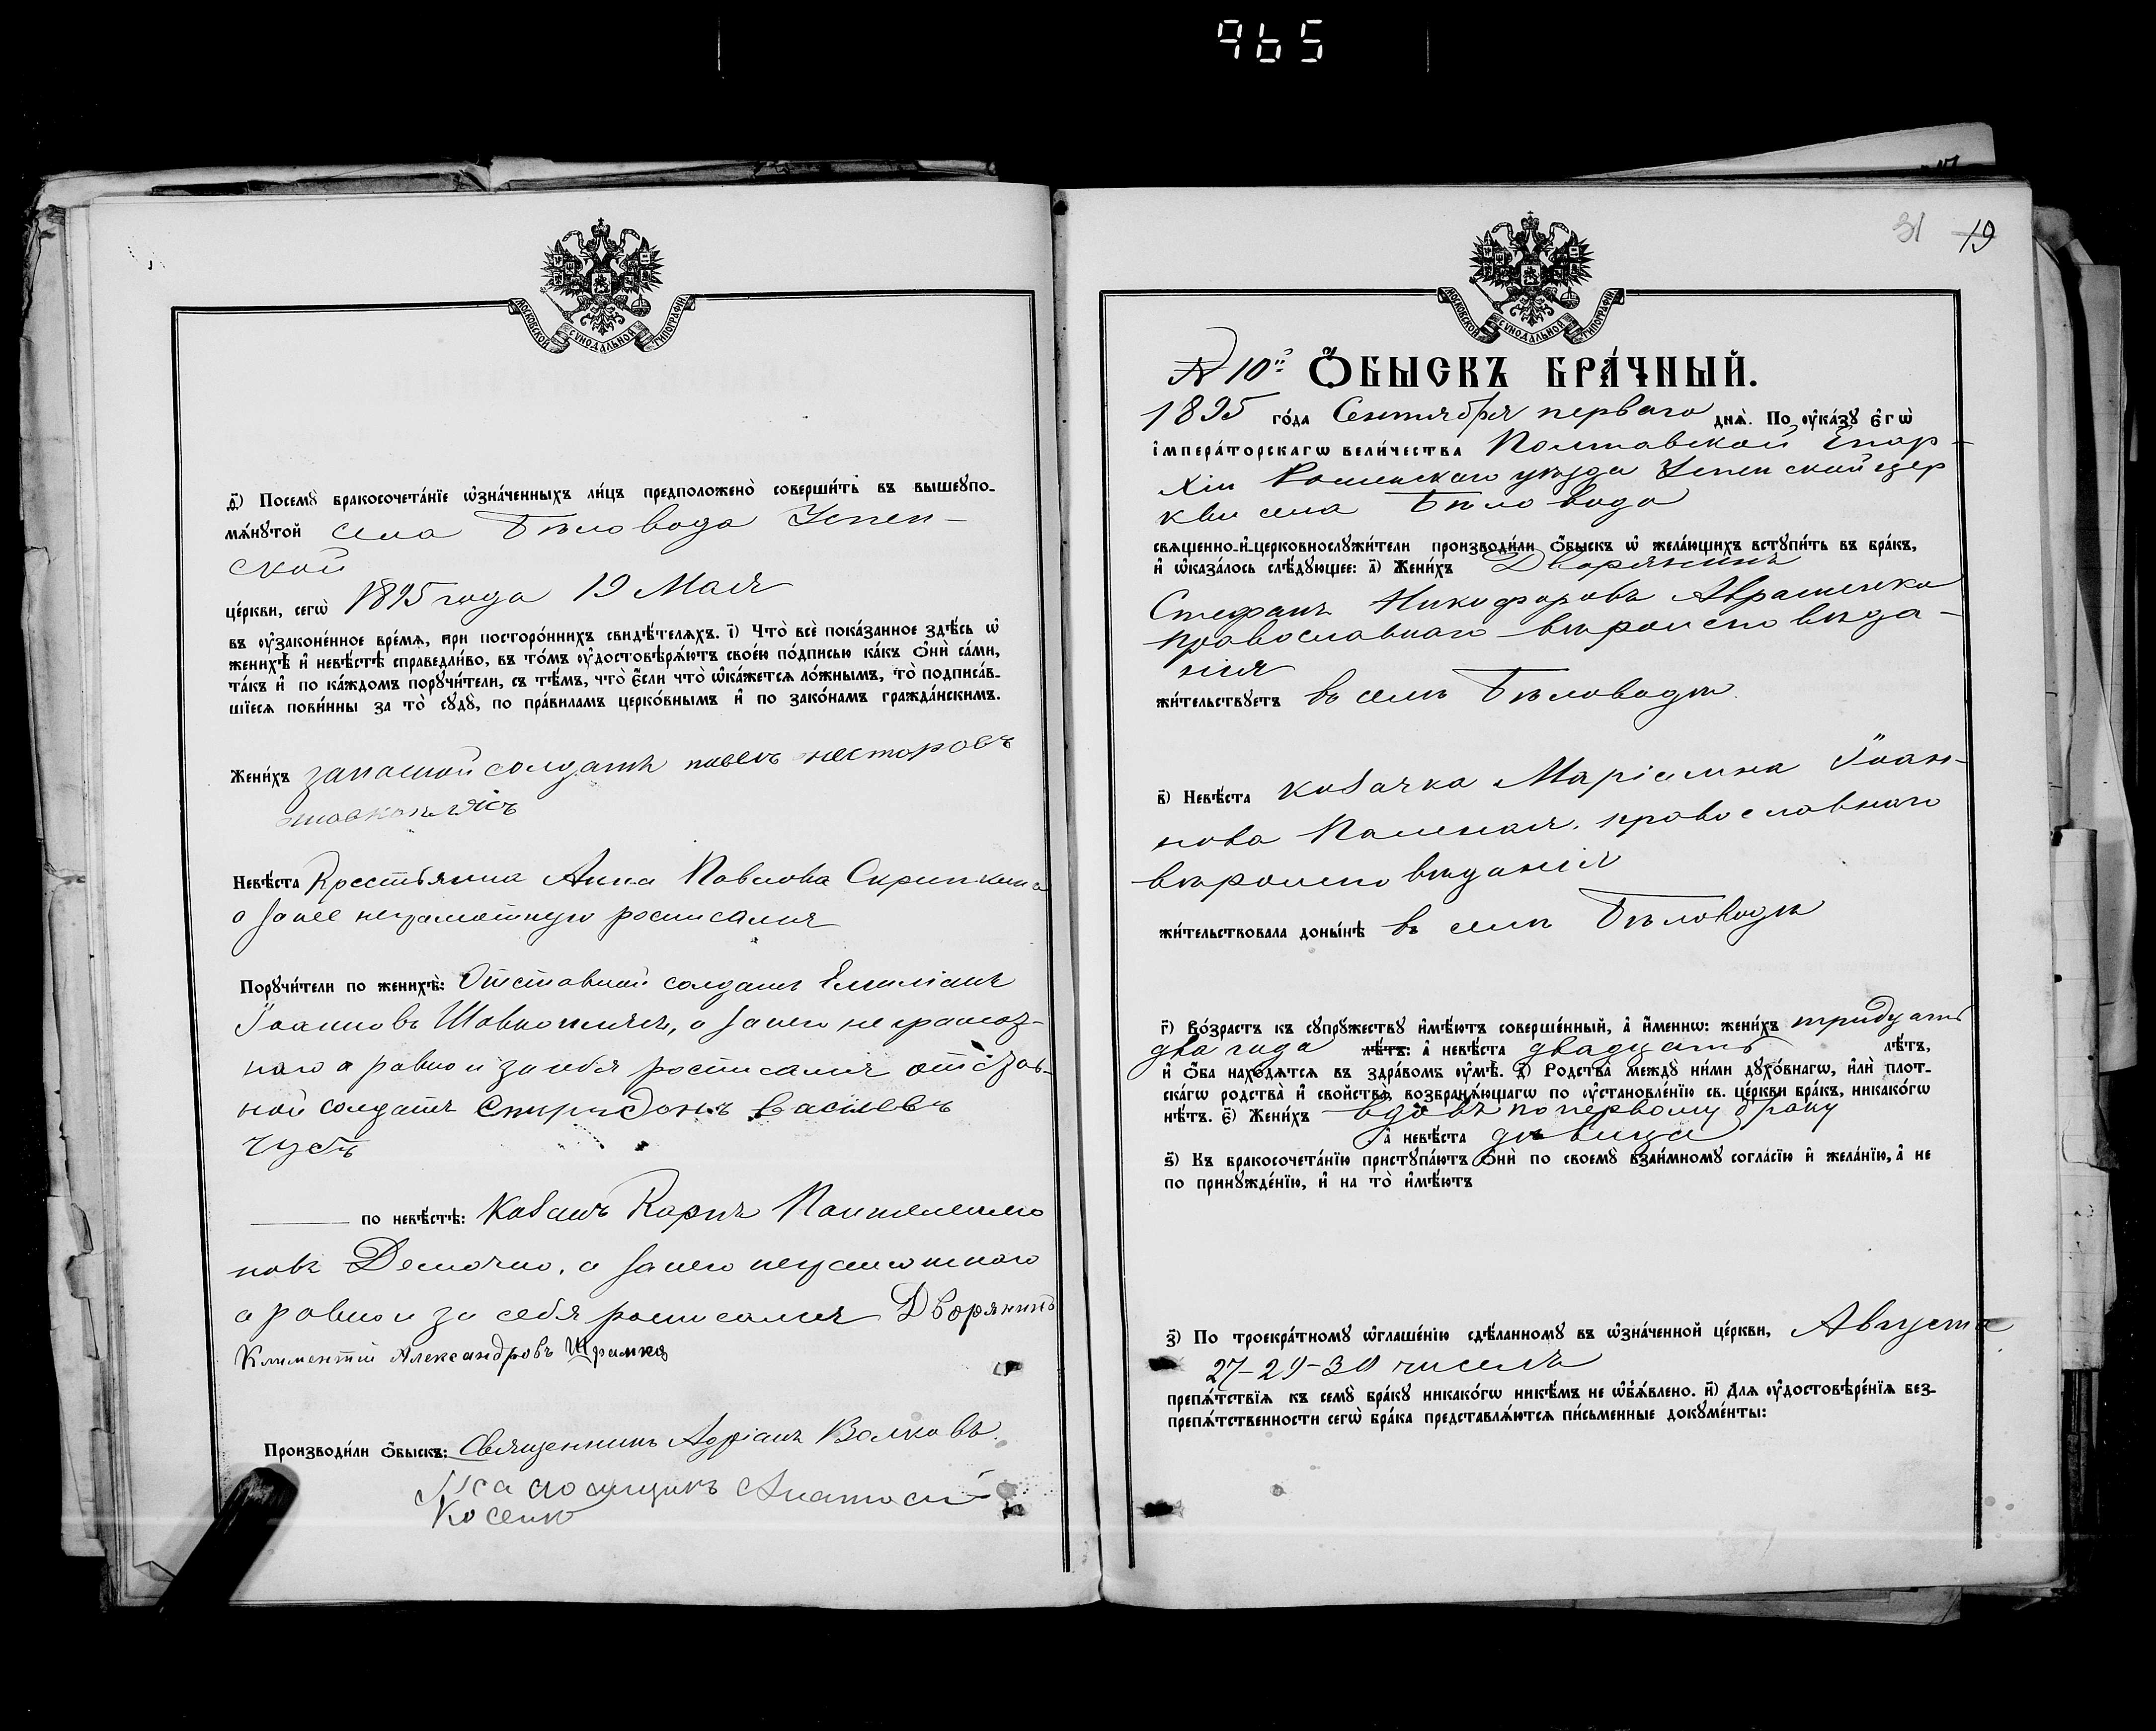 965
МОСКОВСКОЙ СѴНОДАЛЬНОЙ ТИПОГРАФІИ
д҃) Посемꙋ̀ бракосочета́нїе ѡ҆зна́ченныхъ ли́цъ предположено̀ соверши́ть въ вышеꙋпо-
мѧ́нꙋтой села Бѣловода Успен-
ской
це́ркви, сегѡ̀ 1895 года 19 Мая
въ ᲂу҆законе́нное вре́мѧ, при посторо́ннихъ свидѣ́телѧхъ. і҃) Что̀ всѐ пока́занное здѣ́сь ѡ҆
женихѣ̀ и҆ невѣ́стѣ справедли́во, въ то́мъ ᲂу҆достовѣрѧ́ютъ свое́ю по́дписью ка́къ ѻ҆нѝ са́ми,
та́къ и҆ по ка́ждомъ порꙋчи́тели, съ тѣ́мъ, что̀ є҆́сли что̀ ѡ҆ка́жетсѧ ло́жнымъ, то̀ подписа́в-
шїесѧ пови́нны за то̀ сꙋдꙋ̀, по пра́виламъ церко́внымъ и҆ по зако́намъ гражда́нскимъ.
Жени́хъ запасной солдатъ павелъ несторовъ
шовкоплясъ
Невѣ́ста Крестьянка Анна Павлова Скрипкина
а занее неграмотную росписался
Порꙋчи́тели по женихѣ̀: Отставной солдатъ Емиліанъ
Іоанновъ Шовкоплясъ, а занего неграмот-
наго а равно и за себя росписался отстав-
ной солдатъ Спиридонъ васильевъ
чубъ
по невѣ́стѣ: Козакъ Карпъ Пантелеимо
новъ Демочко, а занего неграмотнаго
а равно и за себя росписался Дворянинъ
Климентій Александровъ Шрамко
Производи́ли ѻ҆́быскъ: Священникъ Адріанъ Волковъ.
Псаломщикъ Анатолій
Косенко
31 19
МОСКОВСКОЙ СѴНОДАЛЬНОЙ ТИПОГРАФІИ
№ 10й Ѻ҆́БЫСКЪ БРА́ЧНЫЙ.
1895 го́да Сентября перваго днѧ̀. По ᲂу҆ка́зꙋ є҆гѡ̀
і҆мпера́торскагѡ вели́чества Полтавской Епар-
хіи Роменскаго уѣзда Успенской цер
кви села Бѣловода
свѧщенно-и҆-церковнослꙋжи́тели производи́ли ѻ҆́быскъ ѡ҆ жела́ющихъ встꙋпи́ть въ бра́къ,
и҆ ѡ҆каза́лось слѣ́дꙋющее: а҃) Жени́хъ Дворянинъ
Стефанъ Никифоровъ Авраменко
православнаго вѣроисповѣда-
нія
жи́тельствꙋетъ въ селѣ Бѣловодѣ.
в҃) Невѣ́ста козачка Маріамна Іоан-
нова православнаго
вѣроисповѣданія
жи́тельствовала доны́нѣ въ селѣ Бѣловодѣ
г҃) Во́зрастъ къ сꙋпрꙋ́жествꙋ и҆мѣ́ютъ соверше́нный, а҆ и҆́меннѡ: жени́хъ тридцать
два года лѣ́тъ: а҆ невѣ́ста двадцать лѣ́тъ,
и҆ ѻ҆́ба нахо́дѧтсѧ въ здра́вомъ ᲂу҆мѣ̀. д҃) Родства̀ междꙋ̀ ни́ми дꙋхо́внагѡ, и҆лѝ плот-
ска́гѡ родства̀ и҆ сво́йства̀, возбранѧ́ющагѡ по ᲂу҆становле́нїю св. це́ркви бра́къ, никако́гѡ
нѣ́тъ. є҃) Жени́хъ вдовъ по первому браку
а҆ невѣ́ста дѣвица
ѕ҃) Къ бракосочета́нїю пристꙋпа́ютъ ѻ҆нѝ по своемꙋ̀ взаи́мномꙋ согла́сїю и҆ жела́нїю, а҆ не
по принꙋжде́нїю, и҆ на то̀ и҆мѣ́ютъ
з҃) По троекра́тномꙋ ѡ҆глаше́нїю сдѣ́ланномꙋ въ ѡ҆зна́ченной це́ркви, Августа
27-29-30 чиселъ
препѧ́тствїѧ къ семꙋ̀ бра́кꙋ никако́гѡ никѣ́мъ не ѡ҆б̾ѧ́влено. и҃) Для ᲂу҆достовѣре́нїѧ без-
препѧ́тственности сегѡ̀ бра́ка представлѧ́ютсѧ пи́сьменные докꙋме́нты: